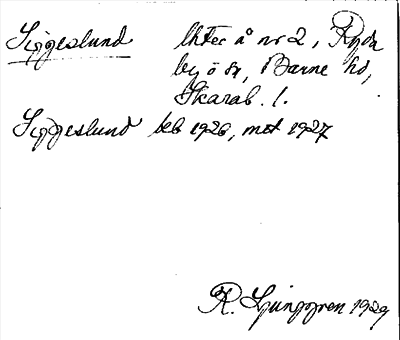 Siggeslund lht ec å nr 2, Ryda
by ö sn, Barne hd,
Skarab. l.
Siggeslund beb 1926, mot 1927
R. Ljunggren 1929